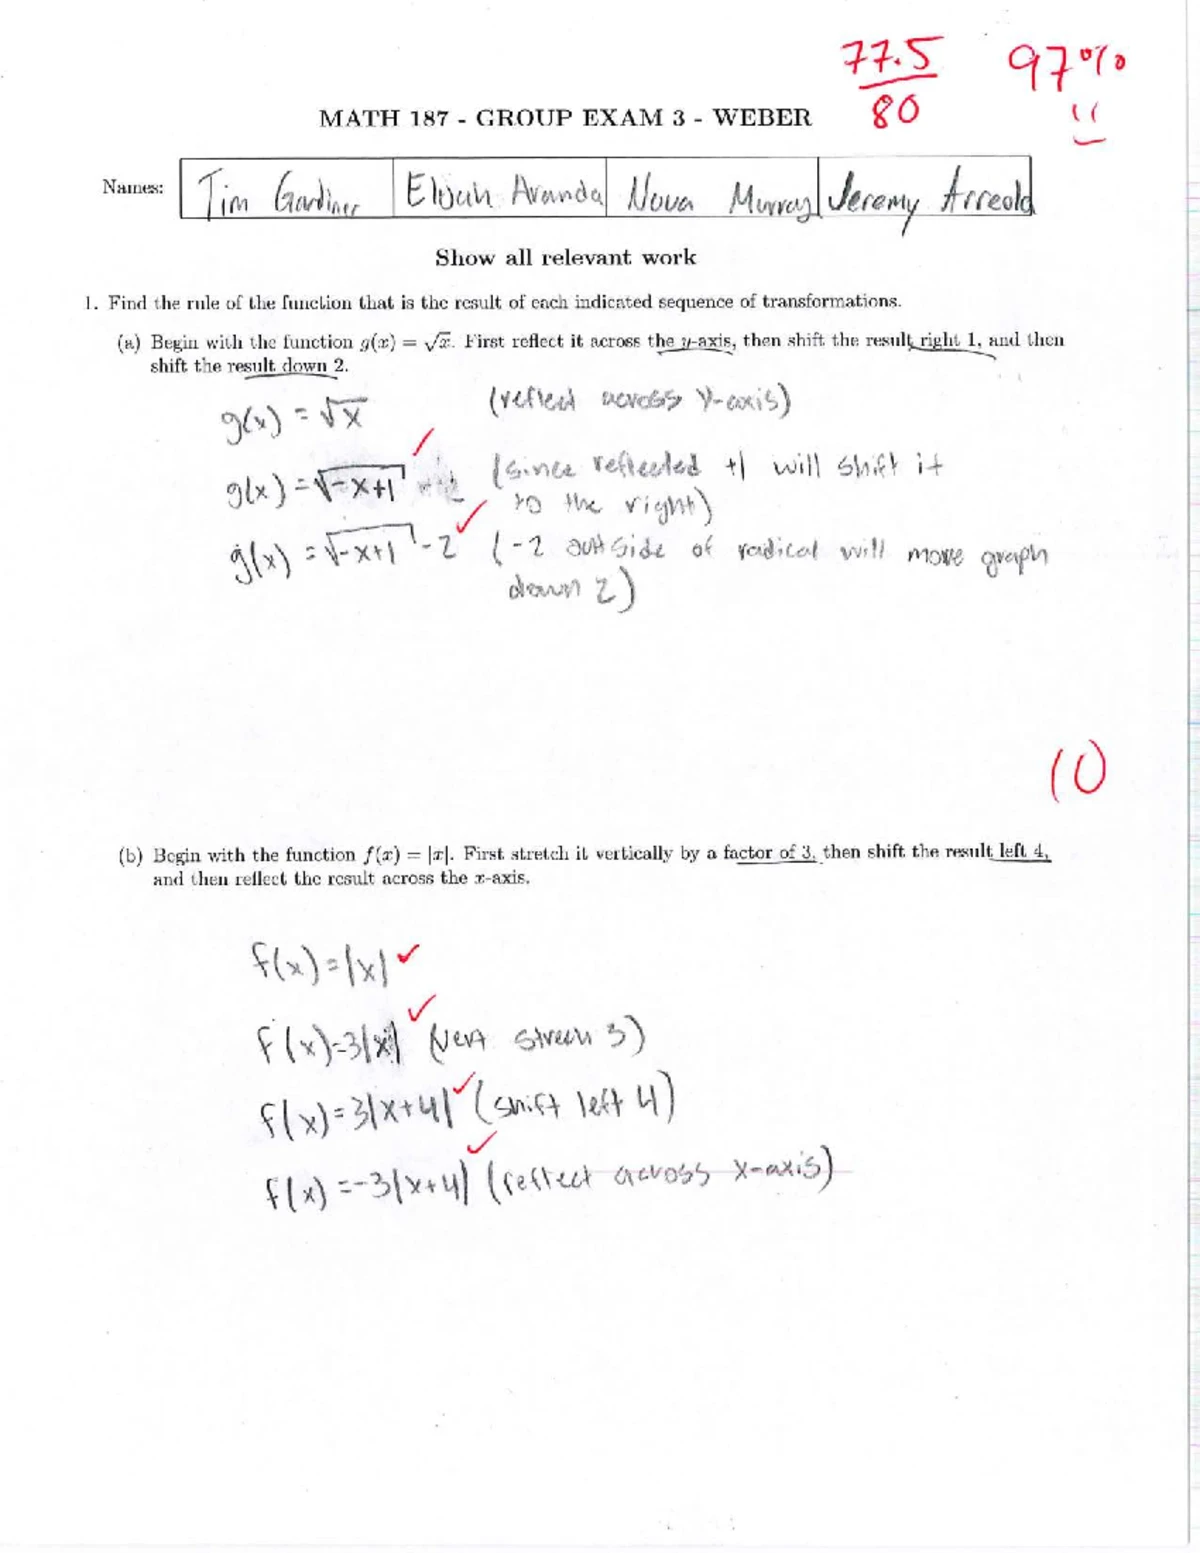 77.5
80
97%
MATH 187 - GROUP EXAM 3 - WEBER
Names: Tim Gardiner Elijah Aranda Nova Murray Jeremy Arreola
Show all relevant work
1. Find the rule of the function that is the result of each indicated sequence of transformations.
(a) Begin with the function g(x) = √x. First reflect it across the y-axis, then shift the result right 1, and then
shift the result down 2.
g(x) = √x (reflect across y-axis)
g(x) = √-x+1 (since reflected +1 will shift it
to the right)
g(x) = √-x+1 - 2 (-2 outside of radical will move graph
down 2)
10
(b) Begin with the function f(x) = |x|. First stretch it vertically by a factor of 3, then shift the result left 4,
and then reflect the result across the x-axis.
f(x) = |x|
f(x) = 3|x| (vert strech 3)
f(x) = 3|x+4| (shift left 4)
f(x) = -3|x+4| (reflect across x-axis)